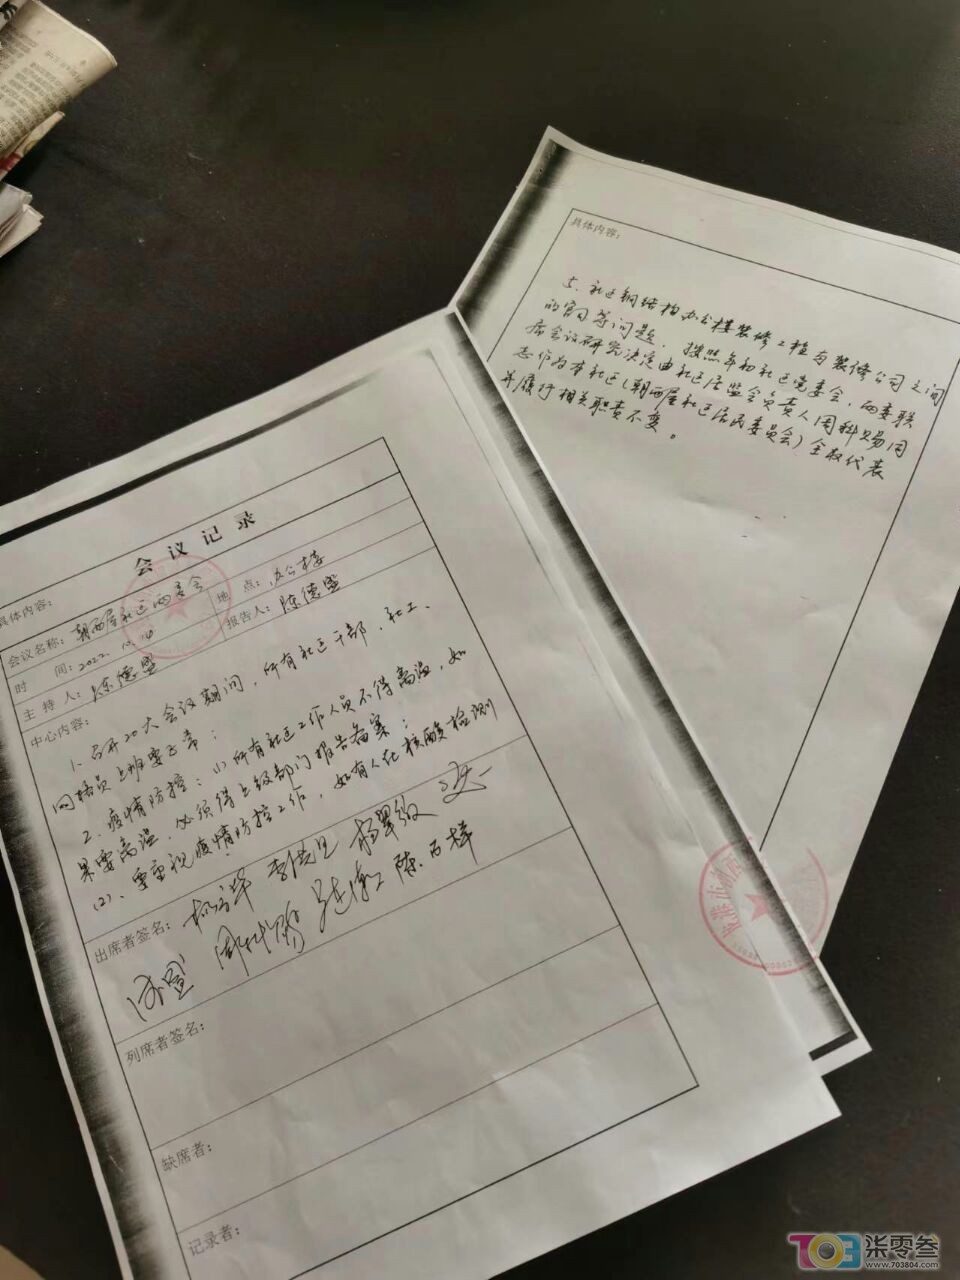 会议记录
具体内容：
会议名称：朝西屋社区两委会
地 点：办公楼
时 间：2022.10.14
报告人：陈德盛
主持人：陈德盛
中心内容：
1、召开20大会议期间，所有社区干部、社工、
网格员上班要正常；
2、疫情防控：(1)所有社区工作人员不得离温，如
果要离温，必须得上级部门报告备案；
(2)、要重视疫情防控工作，如有人在核酸检测
出席者签名：
列席者签名：
缺席者：
记录者：
具体内容：
5、社区钢结构办公楼装修工程与装修公司之间
的官司等问题，按照年初社区党委会、两委联
席会议研究决定由社区居监会负责人周科赐同
志作为本社区(朝西屋社区居民委员会)全权代表
并履行相关职责不变。
703柒零叁
www.703804.com